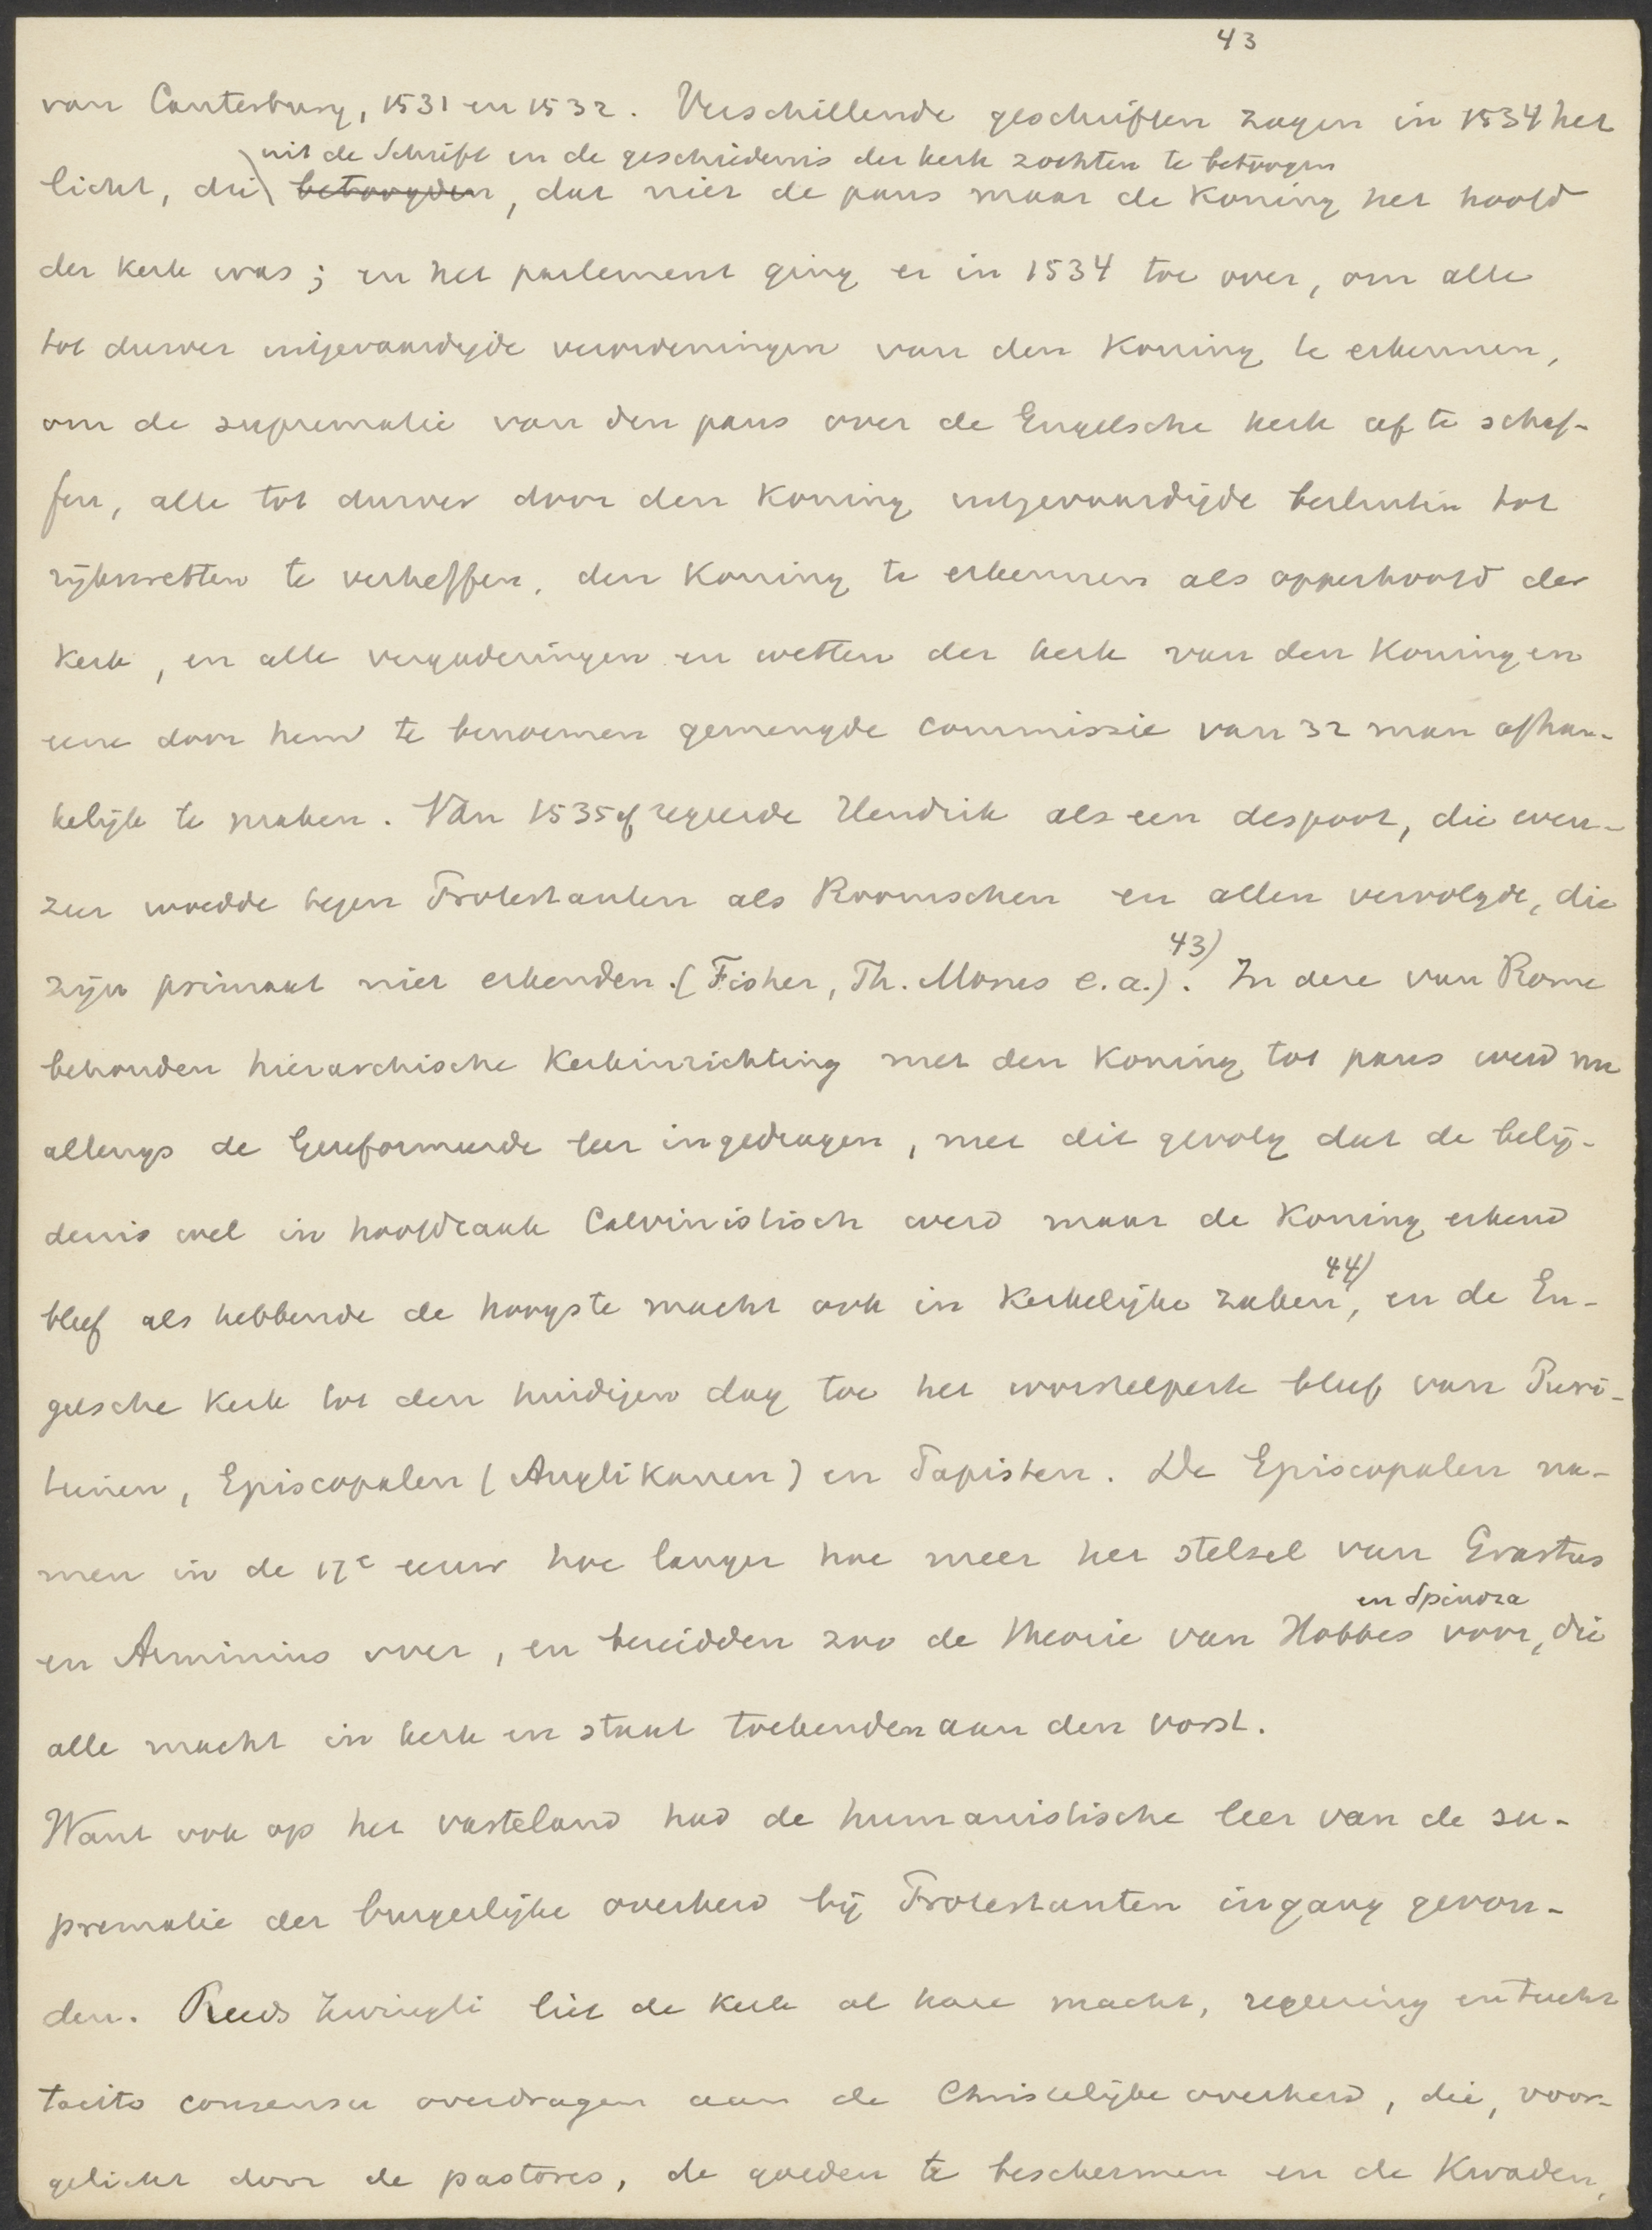 43
van Canterbury, 1531 en 1532. Verschillende geschriften zagen in 1534 het
uit de Schrift en de geschiedenis der kerk zochten te betoogen
licht, die betoogden, dat niet de paus maar de Koning het hoofd
der Kerk was; en het parlement ging er in 1534 toe over, om alle
tot dusver uitgevaardigde verordeningen van den Koning te erkennen,
om de suprematie van den paus over de Engelsche kerk af te schaf-
fen, alle tot dusver door den Koning uitgevaardigde besluiten tot
rijkswetten te verheffen, den Koning te erkennen als opperhoofd der
Kerk, en alle vergaderingen en wetten der kerk van den Koning en
eene door hem te benoemen gemengde commissie van 32 man afhan-
kelijk te maken. Van 1535 af regeerde Hendrik als een despoot, die even-
zeer woedde tegen Protestanten als Roomschen en allen vervolgde, die
zijn primaat niet erkenden. (Fisher, Th. Morus e.a.) 43). In deze van Rome
behouden hierarchische Kerkinrichting met den Koning tot paus werd nu
allengs de Gereformeerde leer ingedragen, met dit gevolg dat de belij-
denis wel in hoofdzaak Calvinistisch werd maar de Koning erkend
bleef als hebbende de hoogste macht ook in Kerkelijke zaken 44), en de En-
gelsche Kerk tot den huidigen dag toe het worstelperk bleef van Puri-
teinen, Episcopalen (Anglikanen) en Papisten. De Episcopalen na-
men in de 17e eeuw hoe langer hoe meer het stelsel van Erastus
en Spinoza
en Arminius over, en bereidden zoo de theorie van Hobbes voor, die
alle macht in kerk en staat toekenden aan den vorst.
Want ook op het vasteland had de humanistische leer van de su-
prematie der burgerlijke overheid bij Protestanten ingang gevon-
den. Reeds Zwingli liet de Kerk al hare macht, regeering en tucht
tacito consensu overdragen aan de Christelijke overheid, die, voor-
gelicht door de pastores, de goeden te beschermen en de Kwaden,